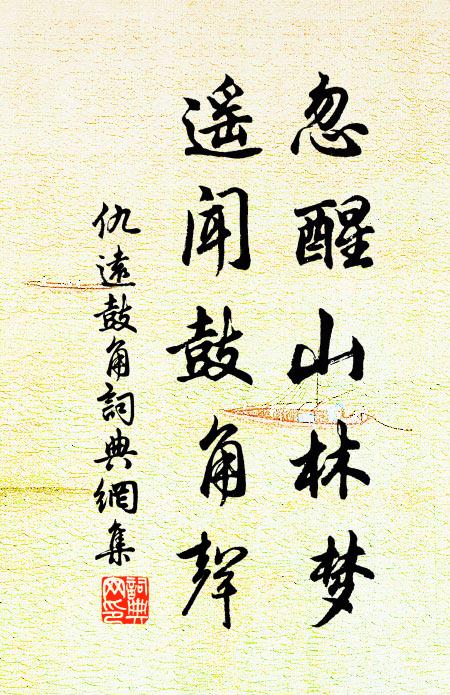 忽醒山林梦
遥闻鼓角声
仇遠鼓角詞典網集
詞典网印